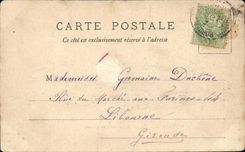 CARTE POSTALE
Ce côté est exclusivement réservé à l'adresse
Mademoiselle Germaine Duchêne
Rue du Marché aux Farines
Libourne
Gironde